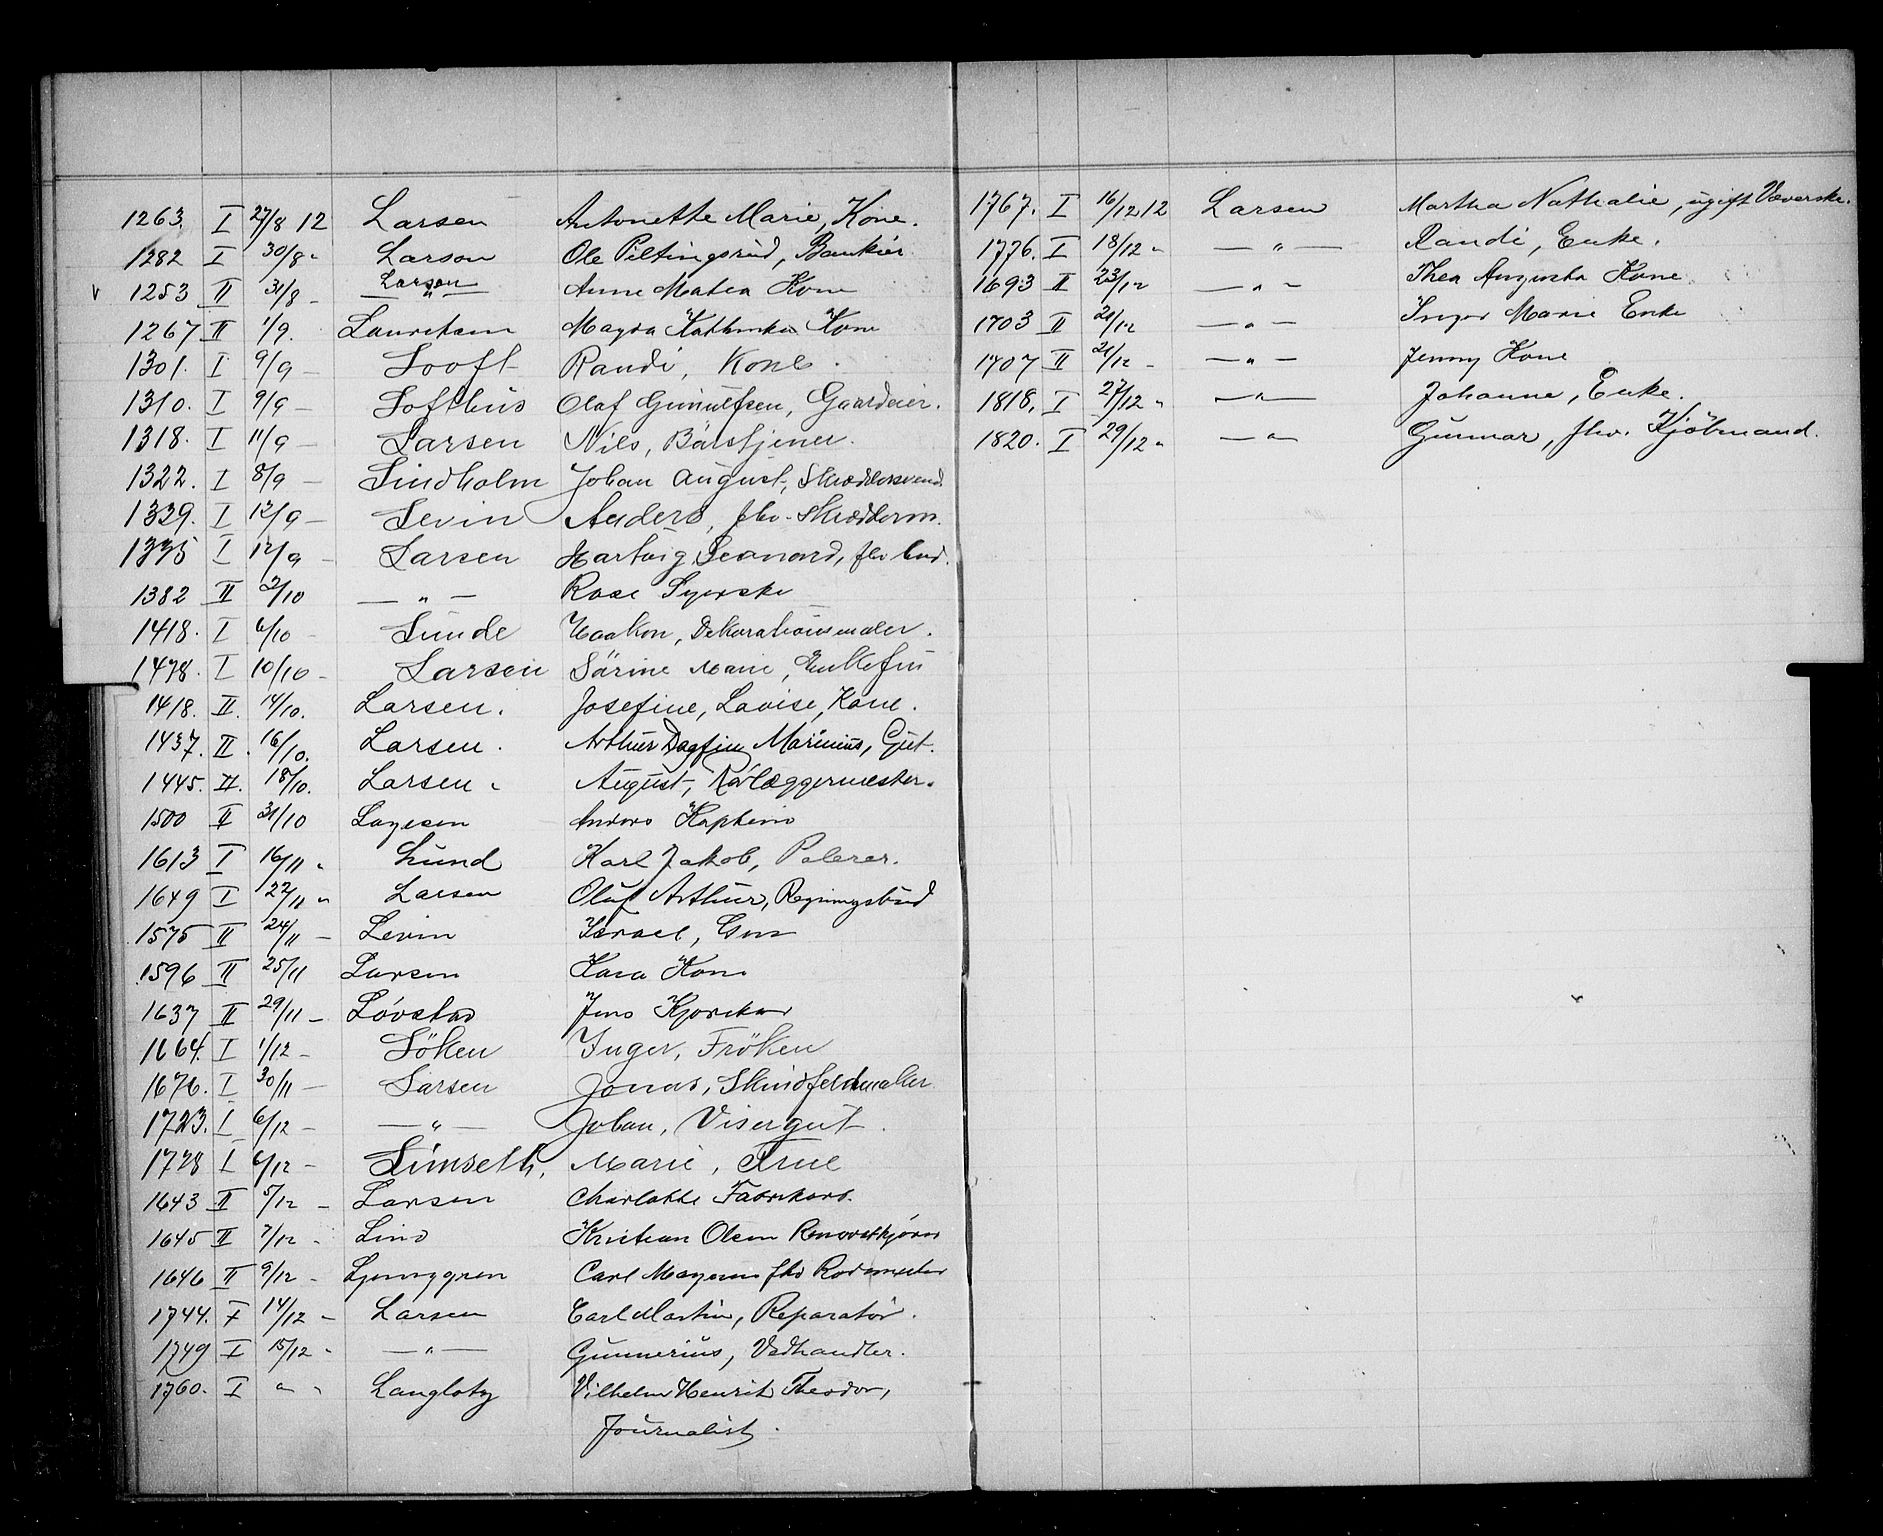 1263. I 27/8 12 Larsen Antonette Marie, Kone.
1282 I 30/8 " Larson Ole Piltingsrud, Bankier
v 1253 II 31/8 - Larsen Anne Matea Kone
1267 II 1/9. Lauretsen Magda Kathinka Kone
1301. I 9/9 - Looft Randi, Kone.
1310. I 9/9 - Lofthus Olaf Gunulfsen, Gaardeier.
1318. I 11/9 - Larsen Nils, Børstjener.
1322. I 8/9 - Lindholm Johan August, Skræddersvend.
1329. I 12/9 - Levin Anders, fhv. Skrædderm.
1335 I 12/9 - Larsen Hartvig Leonard, fhv
1382 II 2/10 — " — Rose Syerske
1418. I 6/10 - Lunde Haakon, Dekorationsmaler.
1478. I 10/10 - Larsen Sörine Marie, Enkefru
1418. II. 14/10. Larsen. Josefine, Lovise, Kone.
1437. II. 16/10. Larsen. Arthur Dagfin Marinius, Gut.
1445. II. 18/10. Larsen. August, Rørlæggermester.
1500 II 31/10 Lagesen Anders Kaptein
1613 I 16/11 " Lund Karl Jakob, Polerer.
1649 I 22/11 " Larsen Oluf Arthur, Regningsbud
1575 II 24/11 - Levin Israel,
1596 II 25/11 Larsen Kara Kone
1637 II 29/11 - Løvstad Jens
1664. I 1/12 - Löken Inger, Fröken
1676. I 30/11 - Larsen Jonas, Skindfeldmaker
1723. I 6/12 - — " — Johan, Visergut.
1728 I 6/12 - Limseth, Marie, Frue
1643 II 5/12 - Larsen Charlotte Fabrikarb.
1645 II 7/12 - Lind Kristian Olsen Renovatkjører
1646 II 9/12 - Ljunggren Carl Magnus fhv Rodemester
1744. I 14/12 - Larsen Carl Martin, Reparatör.
1749 I 15/12 " — " — Gunnerius, Vedhandler.
1760. I " " Langlotz Vilhelm Henrik Theodor,
Journalist.
1767. I 16/12 12 Larsen Martha Nathalie, ugift Væverske.
1776. I 18/12 " — " — Randi, Enke.
1693 II 23/12 — " — Thea Augusta Kone
1703 II 20/12 — " — Inger Marie Enke
1707 II 21/12 - — " — Jenny Kone
1818. I 27/12 " — " — Johanne, Enke.
1820. I 29/12 " — " — Gunnar, fhv. Kjöbmand.